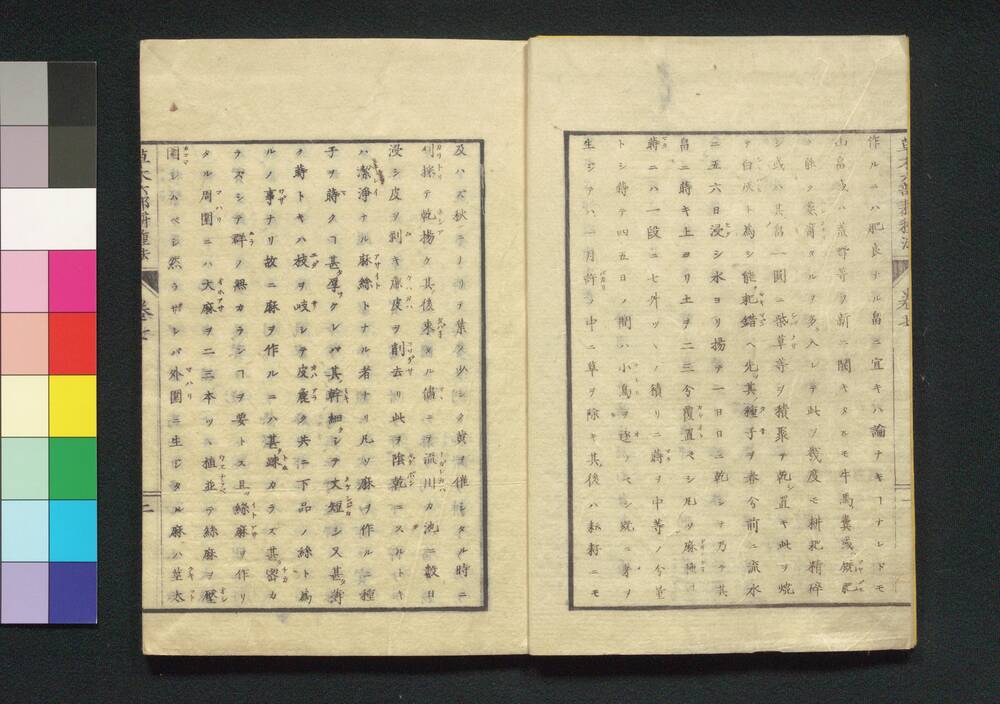 作ルニハ肥良ナル畠ニ宜キハ論ナキーナレドモ
山畠或ハ荒野等ヲ新ニ闢キタルモ牛馬糞或
能ク多入レテ此ヲ幾度モ耕耙精碎
シ或ハ其畠一圓ニ飛草等ヲ積聚テ乾シ置キ此ヲ焼
テ白灰ト為シ能耙錯ヘ先其種子ヲ春分前ニ流水
ニ五六日浸シ水ヨリ揚テ一日日ニ乾シテ乃チ其
畠ニ蒔キ上ヨリ土ヲ二三分覆置ベシ凡ソ麻種ヲ
蒔ニハ一段ニ七升ヅヽノ積リニ蒔ヲ中等ノ分量
トシ蒔テ四五日ノ間ハ小鳥ヲ逐フベシ既ニ芽ヲ
生ジテハ一月許ノ中ニ草ヲ除キ其後ハ耘耔ニモ
草木六部耕種法 巻七
及ハズ秋ニナリテ葉ス少シク黄ヲ催シタル時ニ
刈採テ乾揚ク其後束タル儘ニテ流川カ池ニ數日
浸シ皮ヲ剥キ麁皮ヲ削去リ此ヲ陰乾ニスルトキ
ハ潔浄ナル麻絲トナル者ナリ凡ソ麻ヲ作ルニ種
子ヲ蒔クヿ甚厚クレバ其幹細クシテ丈短シ又甚薄
ク蒔トキハ枝ヲ岐シテ皮麁ク共ニ下品ノ絲ト為
ルノ事ナリ故ニ麻ヲ作ルニハ甚疎カラズ甚密カ
ラズシテ群ノ無カランヿヲ要トス且絲麻ヲ作リ
タル周圍ニハ大麻ヲ二三本ヅヽ植並テ絲麻ヲ壓
圍シムベシ然ラザレバ外圍ニ生ジタル麻ハ莖太
草木六部耕種法 巻七 二